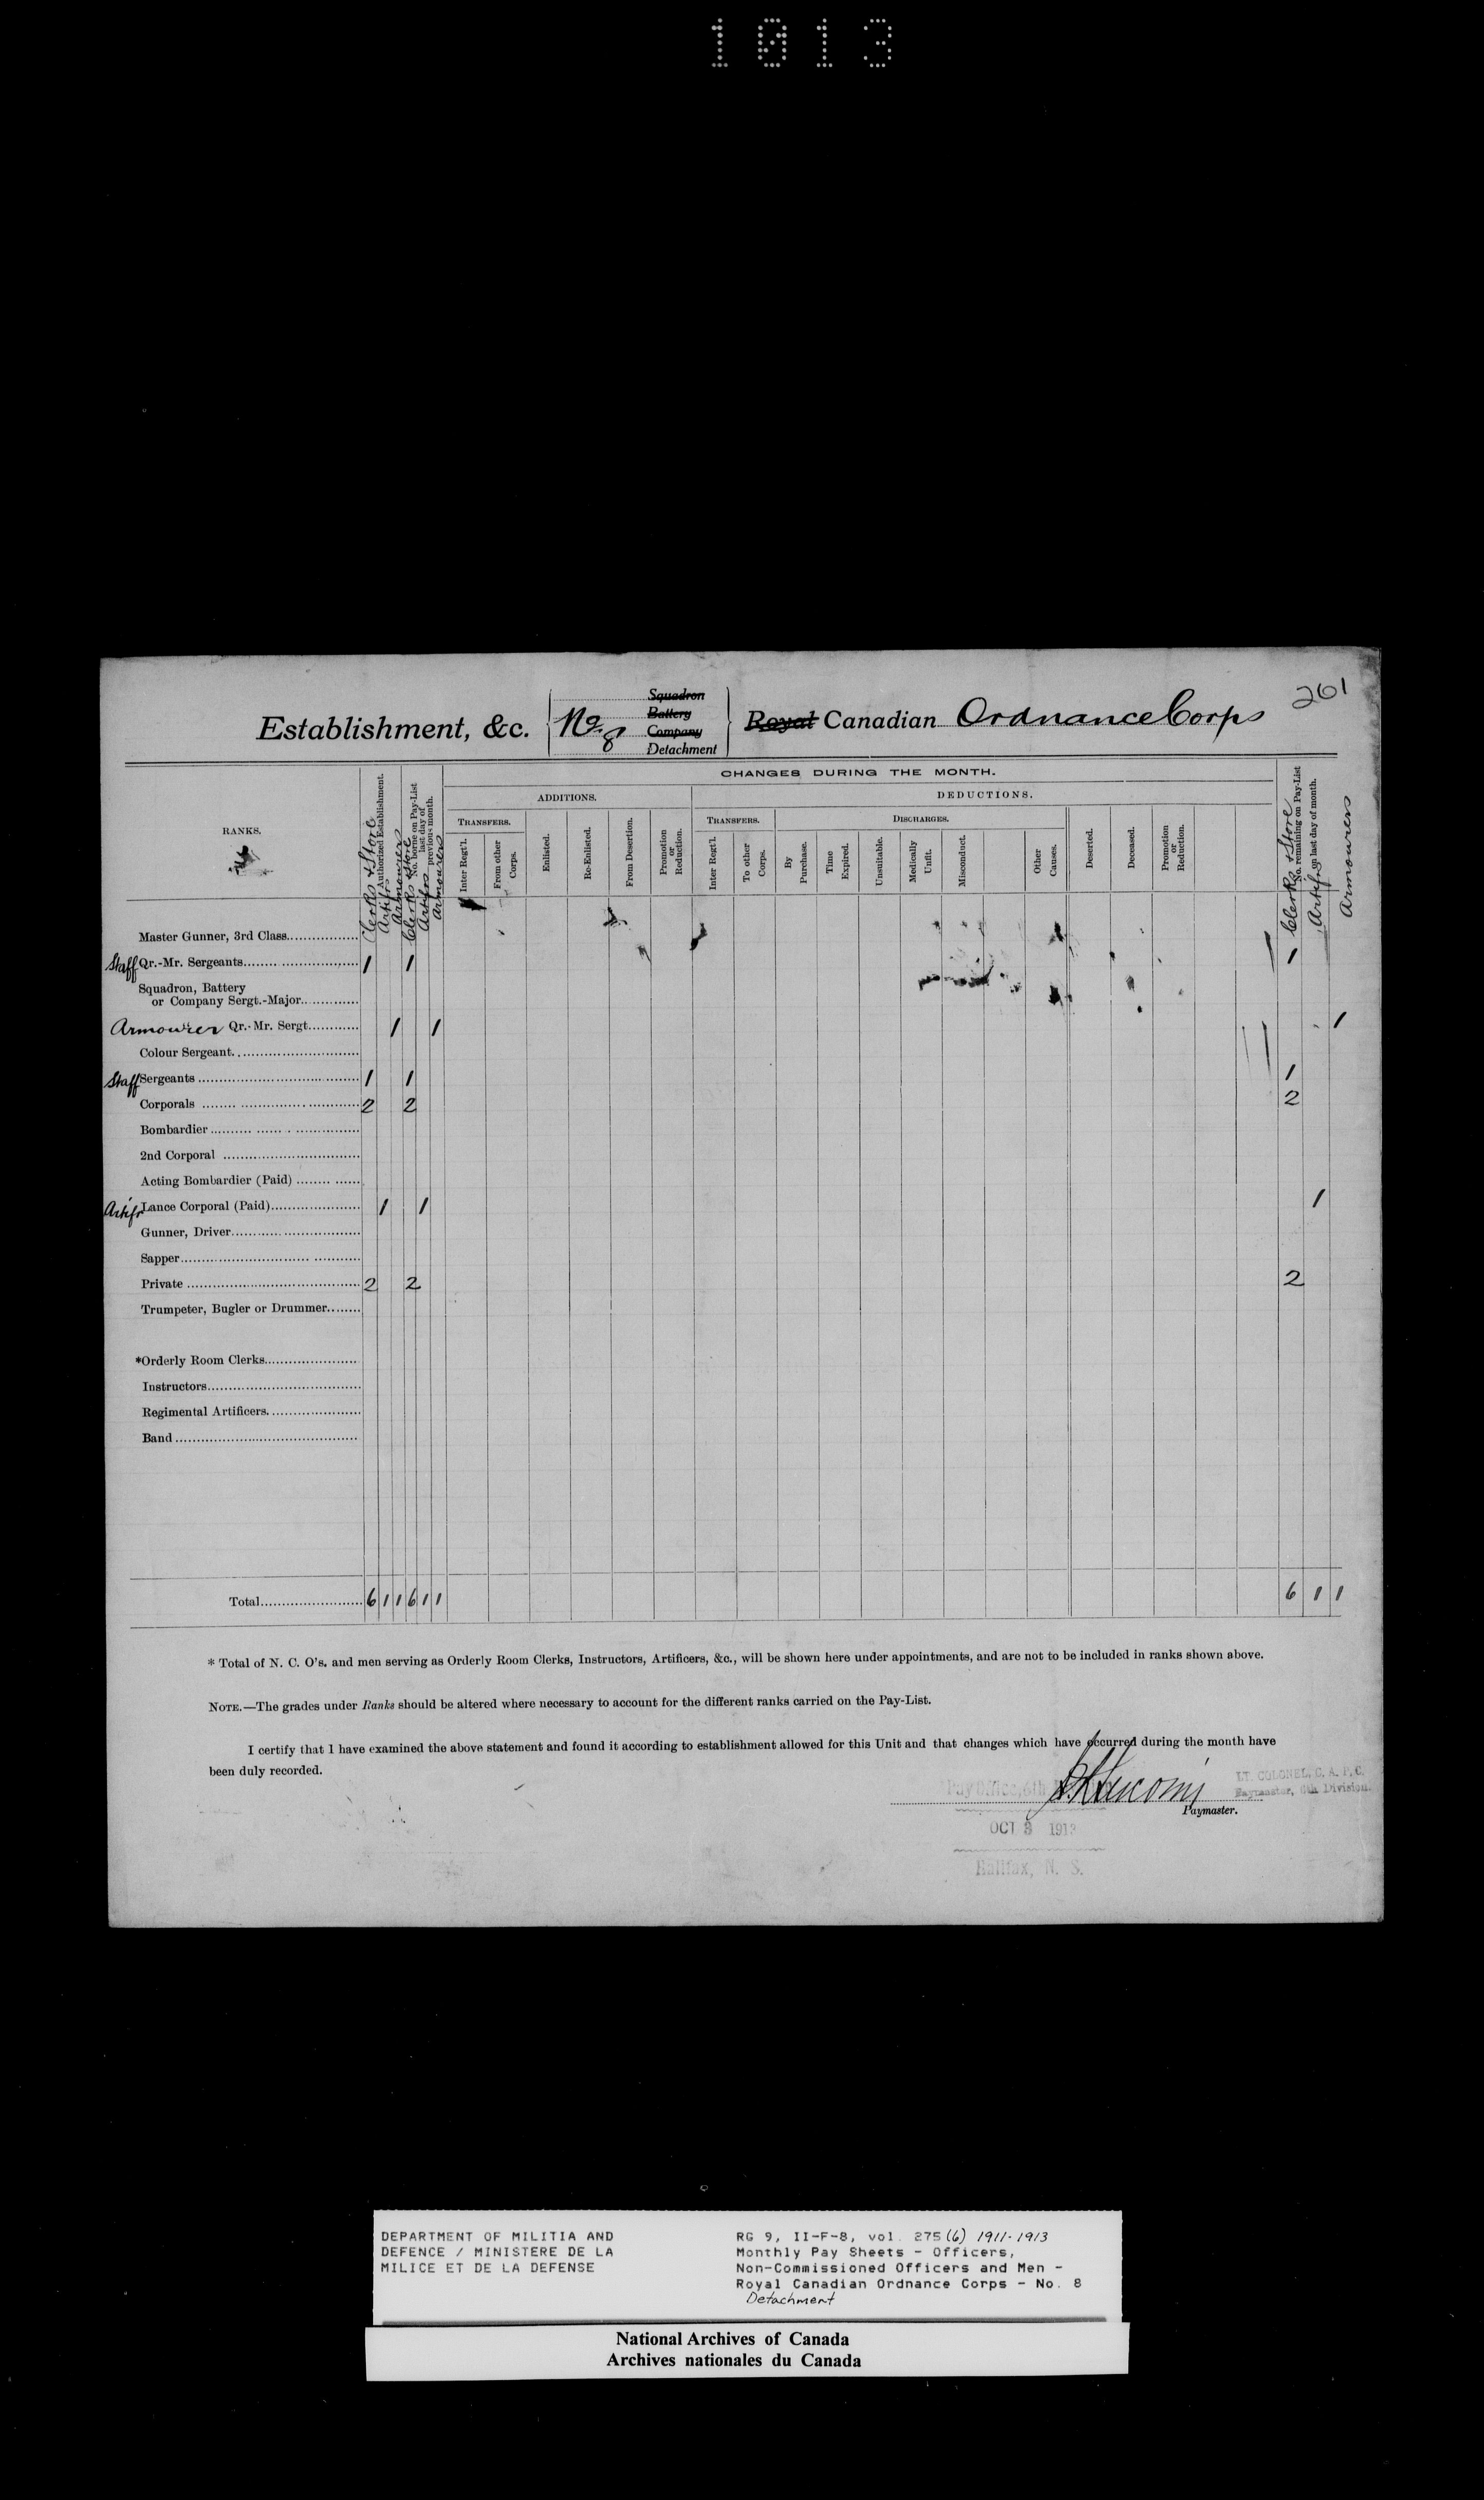 1013
261
Establishment, &c. No. 8 Squadron Battery Company Detachment Royal Canadian Ordnance Corps
RANKS.
Clerks & Store Artifrs Armourers
Authorized Establishment.
Clerks & Store Artifrs Armourers
No. borne on Pay-List last day of previous month.
CHANGES DURING THE MONTH.
ADDITIONS.
DEDUCTIONS.
TRANSFERS.
Inter Regt'l.
From other Corps.
Enlisted.
Re-Enlisted.
From Desertion.
Promotion or Reduction.
TRANSFERS.
Inter Regt'l.
To other Corps.
DISCHARGES.
By Purchase.
Time Expired.
Unsuitable.
Medically Unfit.
Misconduct.
Other Causes.
Deserted.
Deceased.
Promotion or Reduction.
No. remaining on Pay-List on last day of month.
Clerks & Store Artifrs Armourers
Master Gunner, 3rd Class
Staff Qr.-Mr. Sergeants 1 1 1
Squadron, Battery
or Company Sergt.-Major
Armourer Qr.-Mr. Sergt. 1 1 1
Colour Sergeant
Staff Sergeants 1 1 1
Corporals 2 2 2
Bombardier
2nd Corporal
Acting Bombardier (Paid)
Artifr Lance Corporal (Paid) 1 1 1
Gunner, Driver
Sapper
Private 2 2 2
Trumpeter, Bugler or Drummer
*Orderly Room Clerks
Instructors
Regimental Artificers
Band
Total 6 1 1 6 1 1 6 1 1
* Total of N. C. O's. and men serving as Orderly Room Clerks, Instructors, Artificers, &c., will be shown here under appointments, and are not to be included in ranks shown above.
NOTE.—The grades under Ranks should be altered where necessary to account for the different ranks carried on the Pay-List.
I certify that I have examined the above statement and found it according to establishment allowed for this Unit and that changes which have occurred during the month have
been duly recorded.
Pay Office, 6th
LT. COLONEL, C. A. P. C.
Paymaster, 6th Division.
Paymaster.
OCT 3 191
Halifax, N. S.
DEPARTMENT OF MILITIA AND
DEFENCE / MINISTERE DE LA
MILICE ET DE LA DEFENSE
RG 9, II-F-8, vol. 275 (6) 1911-1913
Monthly Pay Sheets - Officers,
Non-Commissioned Officers and Men -
Royal Canadian Ordnance Corps - No. 8
Detachment
National Archives of Canada
Archives nationales du Canada